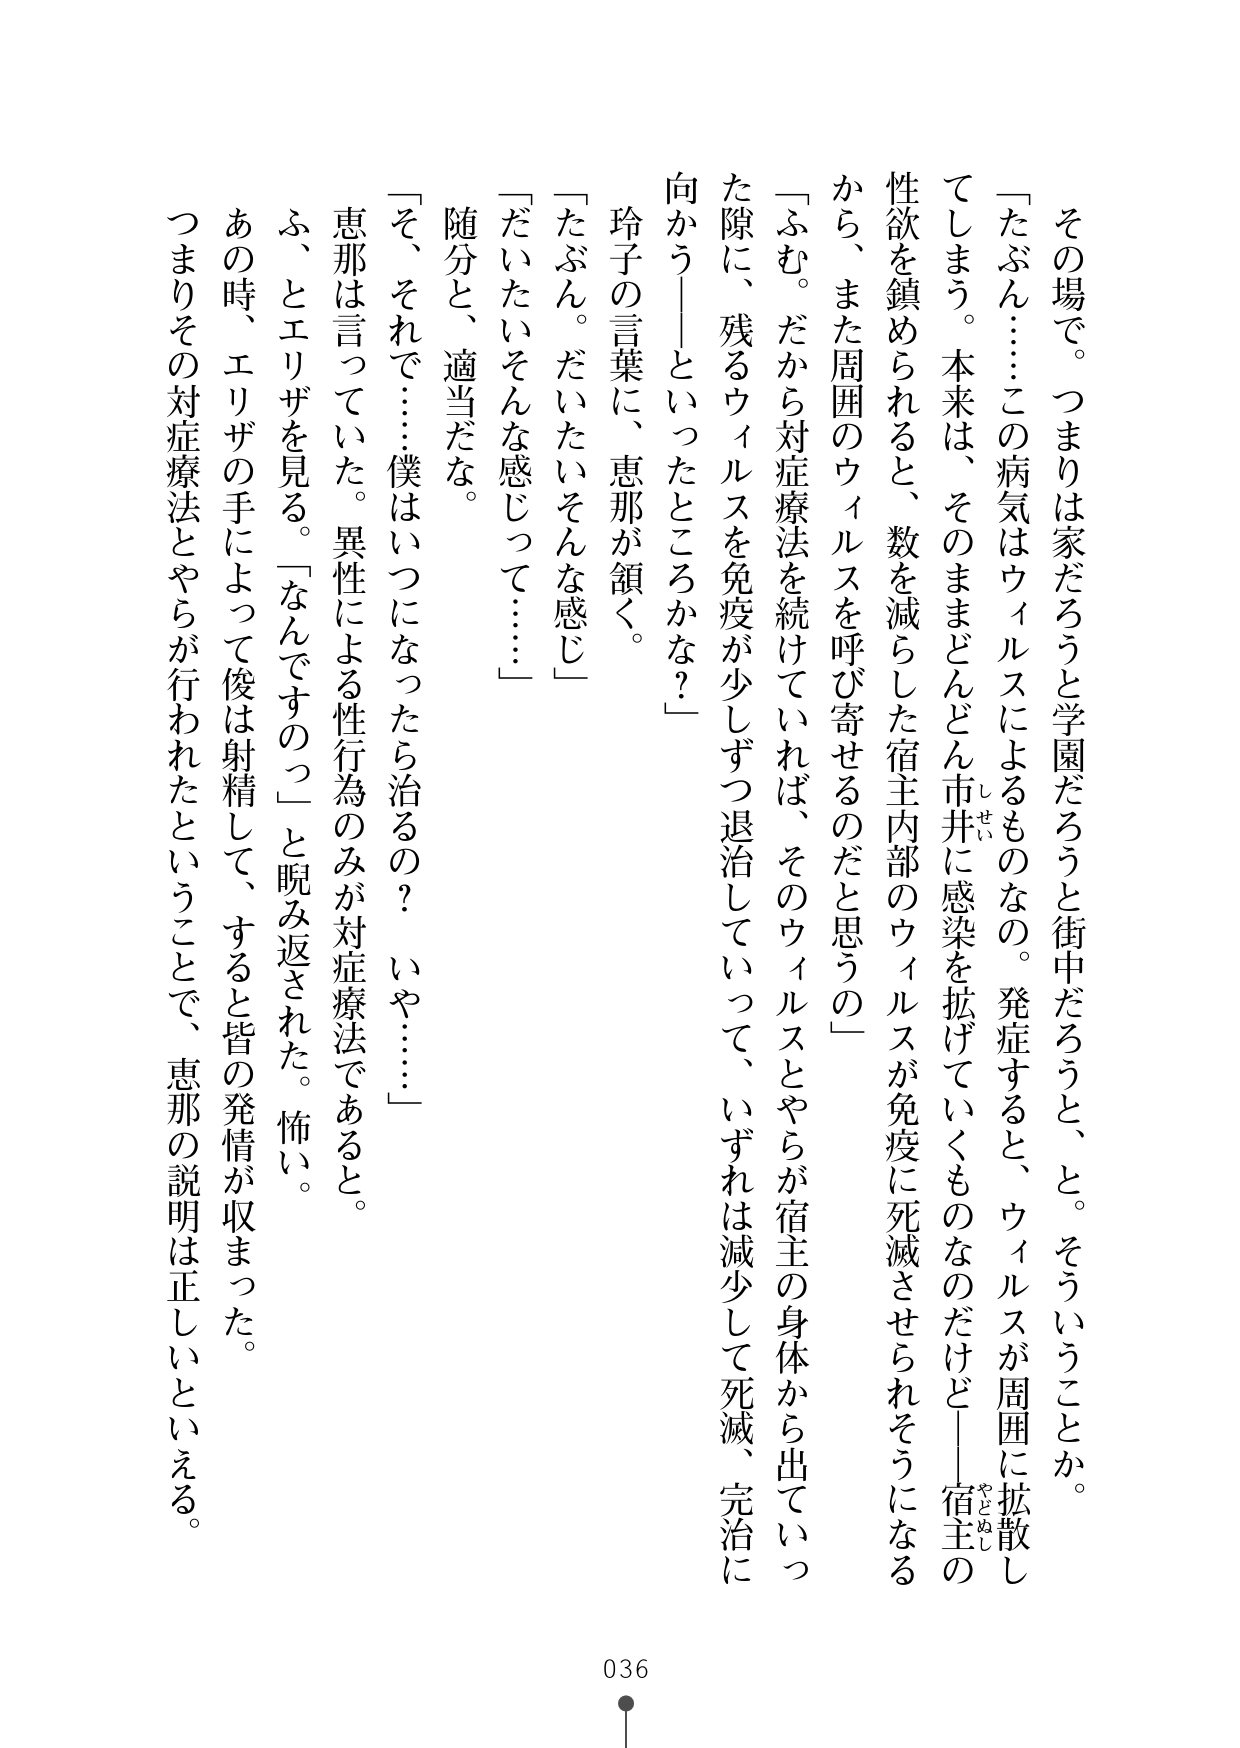 その場で。つまりは家だろうと学園だろうと街中だろうと、と。そういうことか。
「たぶん……この病気はウィルスによるものなの。発症すると、ウィルスが周囲に拡散し
てしまう。本来は、そのままどんどん市井に感染を拡げていくものなのだけど――宿主の
性欲を鎮められると、数を減らした宿主内部のウィルスが免疫に死滅させられそうになる
から、また周囲のウィルスを呼び寄せるのだと思うの」
「ふむ。だから対症療法を続けていれば、そのウィルスとやらが宿主の身体から出ていっ
た隙に、残るウィルスを免疫が少しずつ退治していって、いずれは減少して死滅、完治に
向かう――といったところかな?」
玲子の言葉に、恵那が頷く。
「たぶん。だいたいそんな感じ」
「だいたいそんな感じって……」
随分と、適当だな。
「そ、それで……僕はいつになったら治るの? いや……」
恵那は言っていた。異性による性行為のみが対症療法であると。
ふ、とエリザを見る。「なんですのっ」と睨み返された。怖い。
あの時、エリザの手によって俊は射精して、すると皆の発情が収まった。
つまりその対症療法とやらが行われたということで、恵那の説明は正しいといえる。
しせい
やどぬし
036